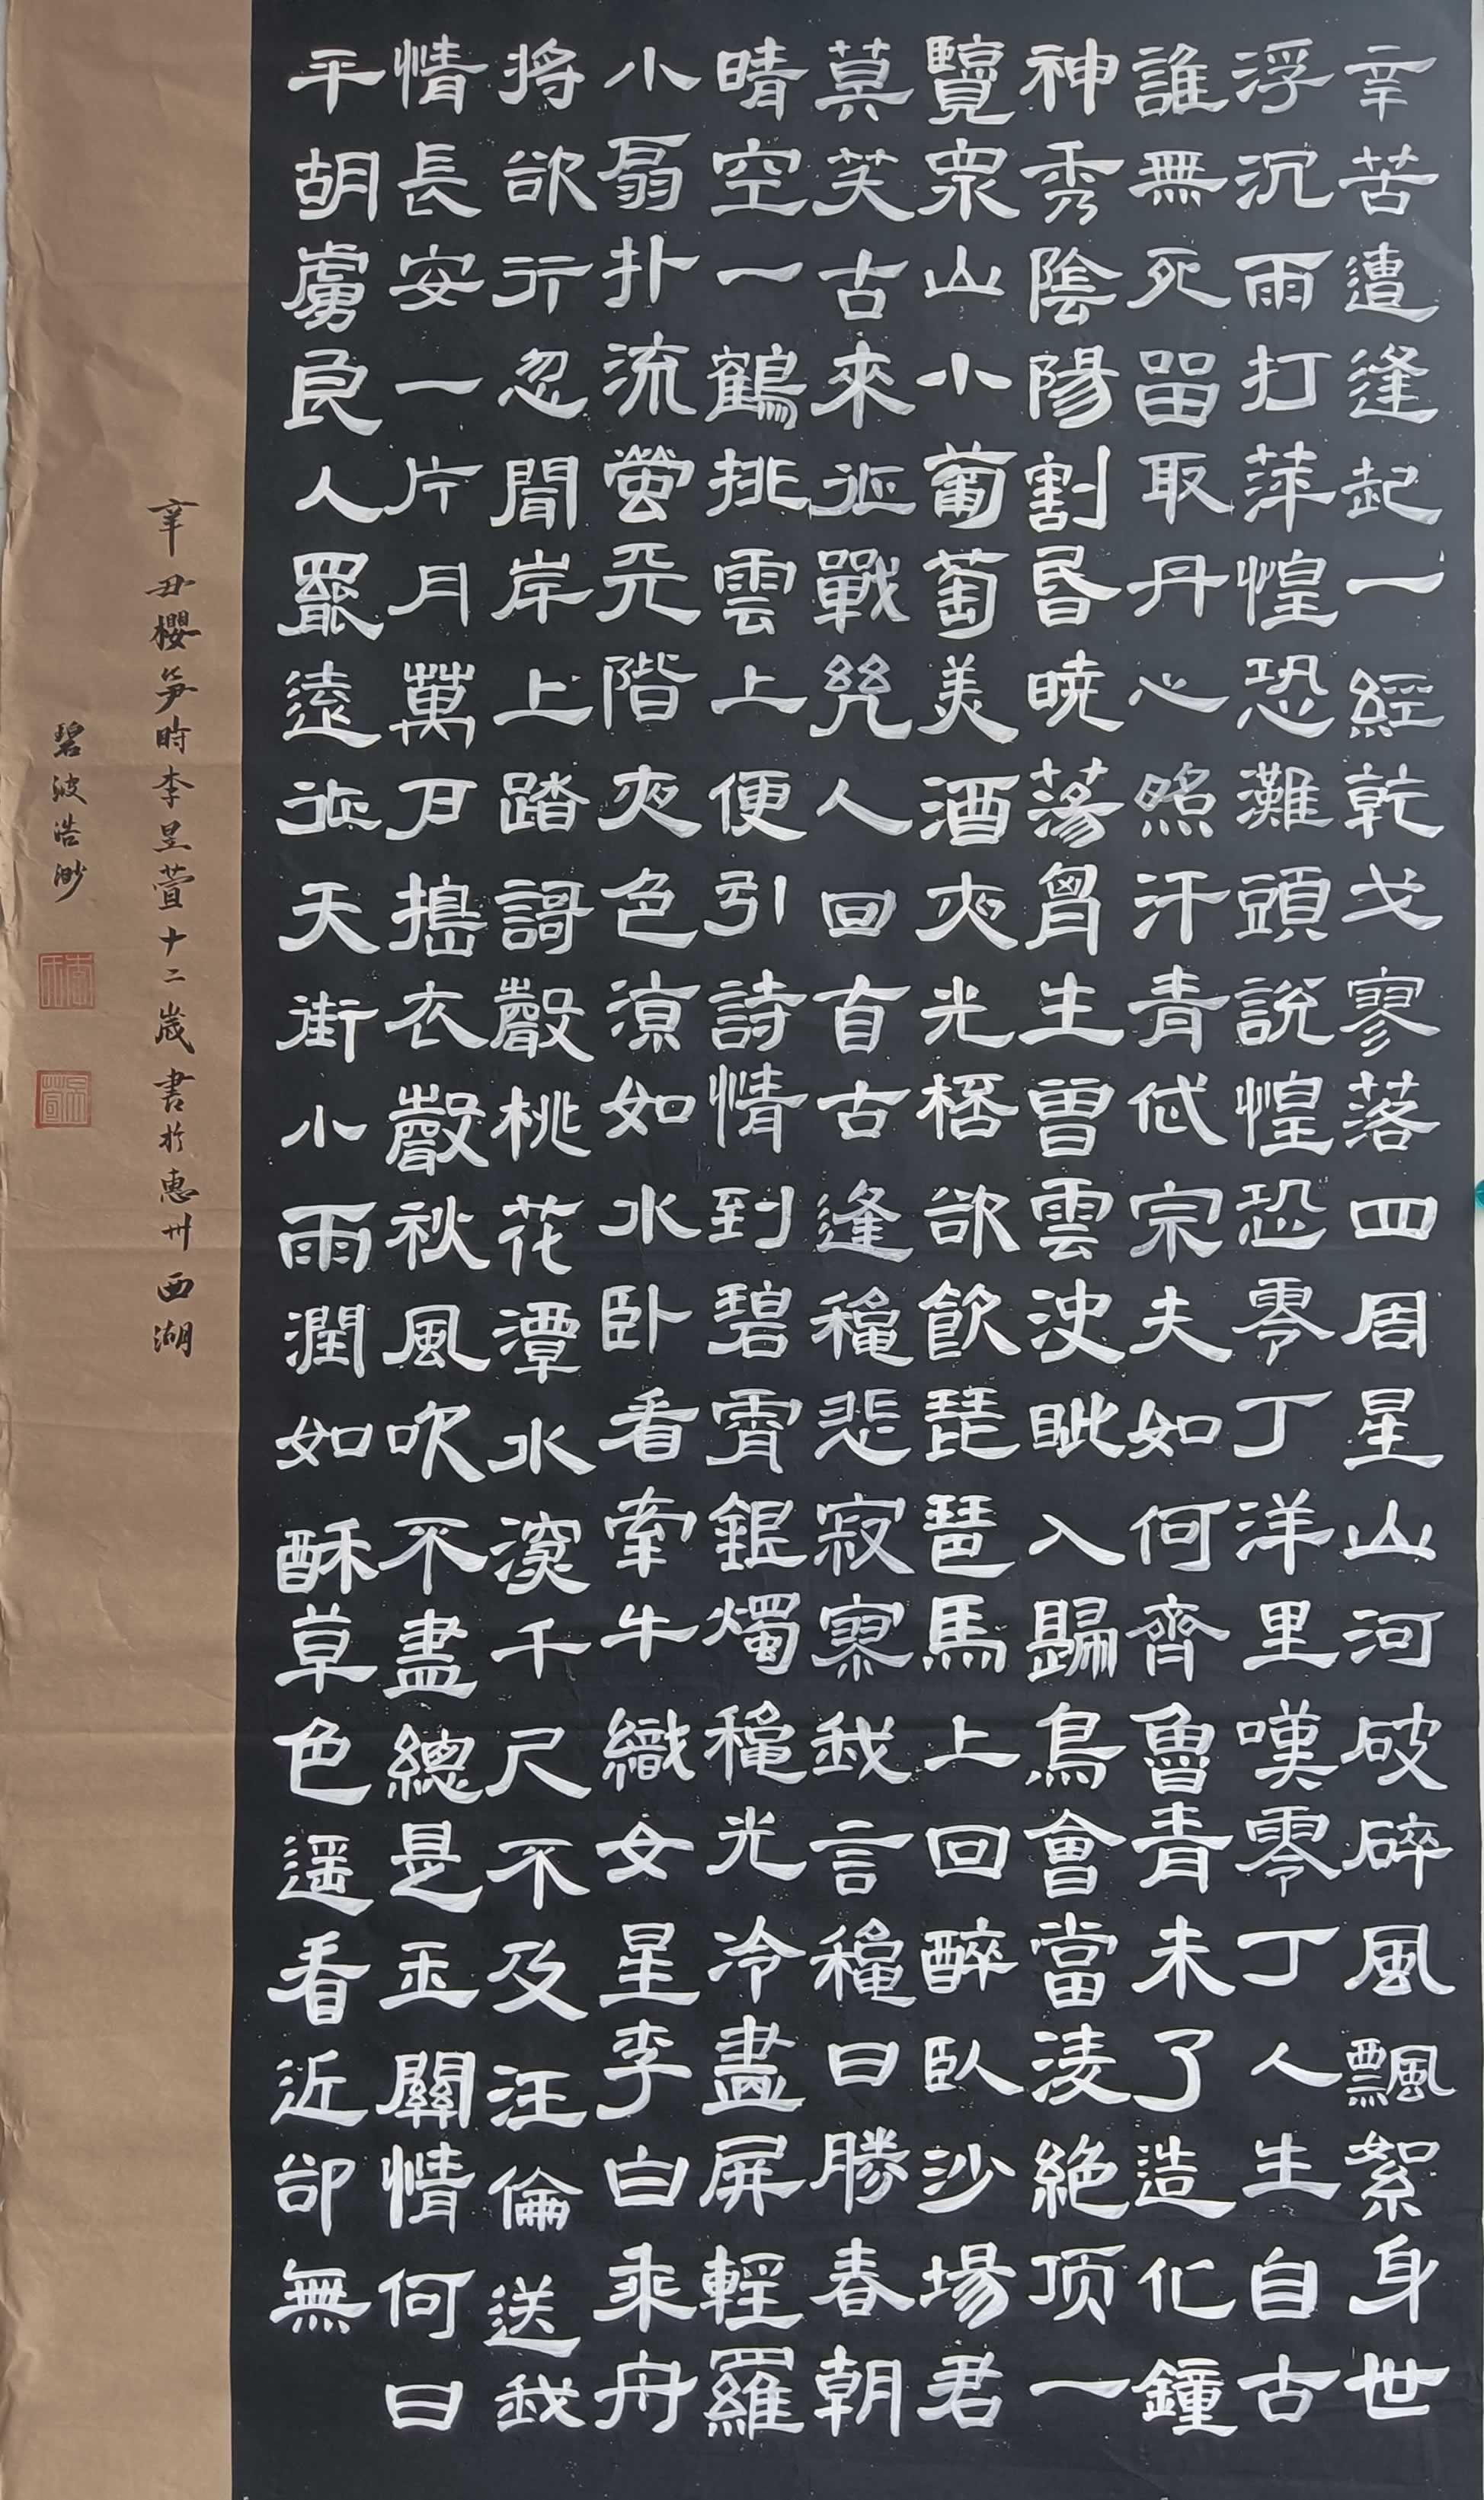 辛苦遭逢起一經乾戈寥落四周星山河破碎風飄絮身世
浮沉雨打萍惶恐灘頭說惶恐零丁洋里嘆零丁人生自古
誰無死留取丹心照汗青岱宗夫如何齊魯青未了造化鐘
神秀陰陽割昏曉蕩胷生曾雲决眦入歸鳥會當凌絕顶一
覽眾山小葡萄美酒夜光桮欲飲琵琶馬上回醉臥沙場君
莫笑古來征戰幾人回自古逢穐悲寂寥我言穐日勝春朝
晴空一鶴排雲上便引詩情到碧霄銀燭穐光冷畫屏輕羅
小扇扑流螢天階夜色涼如水卧看牽牛織女星李白乘舟
將欲行忽聞岸上踏謌聲桃花潭水深千尺不及汪倫送我
情長安一片月萬戶搗衣聲秋風吹不盡總是玉關情何日
平胡虜良人罷遠征天街小雨潤如酥草色遥看近卻無
辛丑櫻笋時李昱萱十二歲書於惠州西湖
碧波浩渺